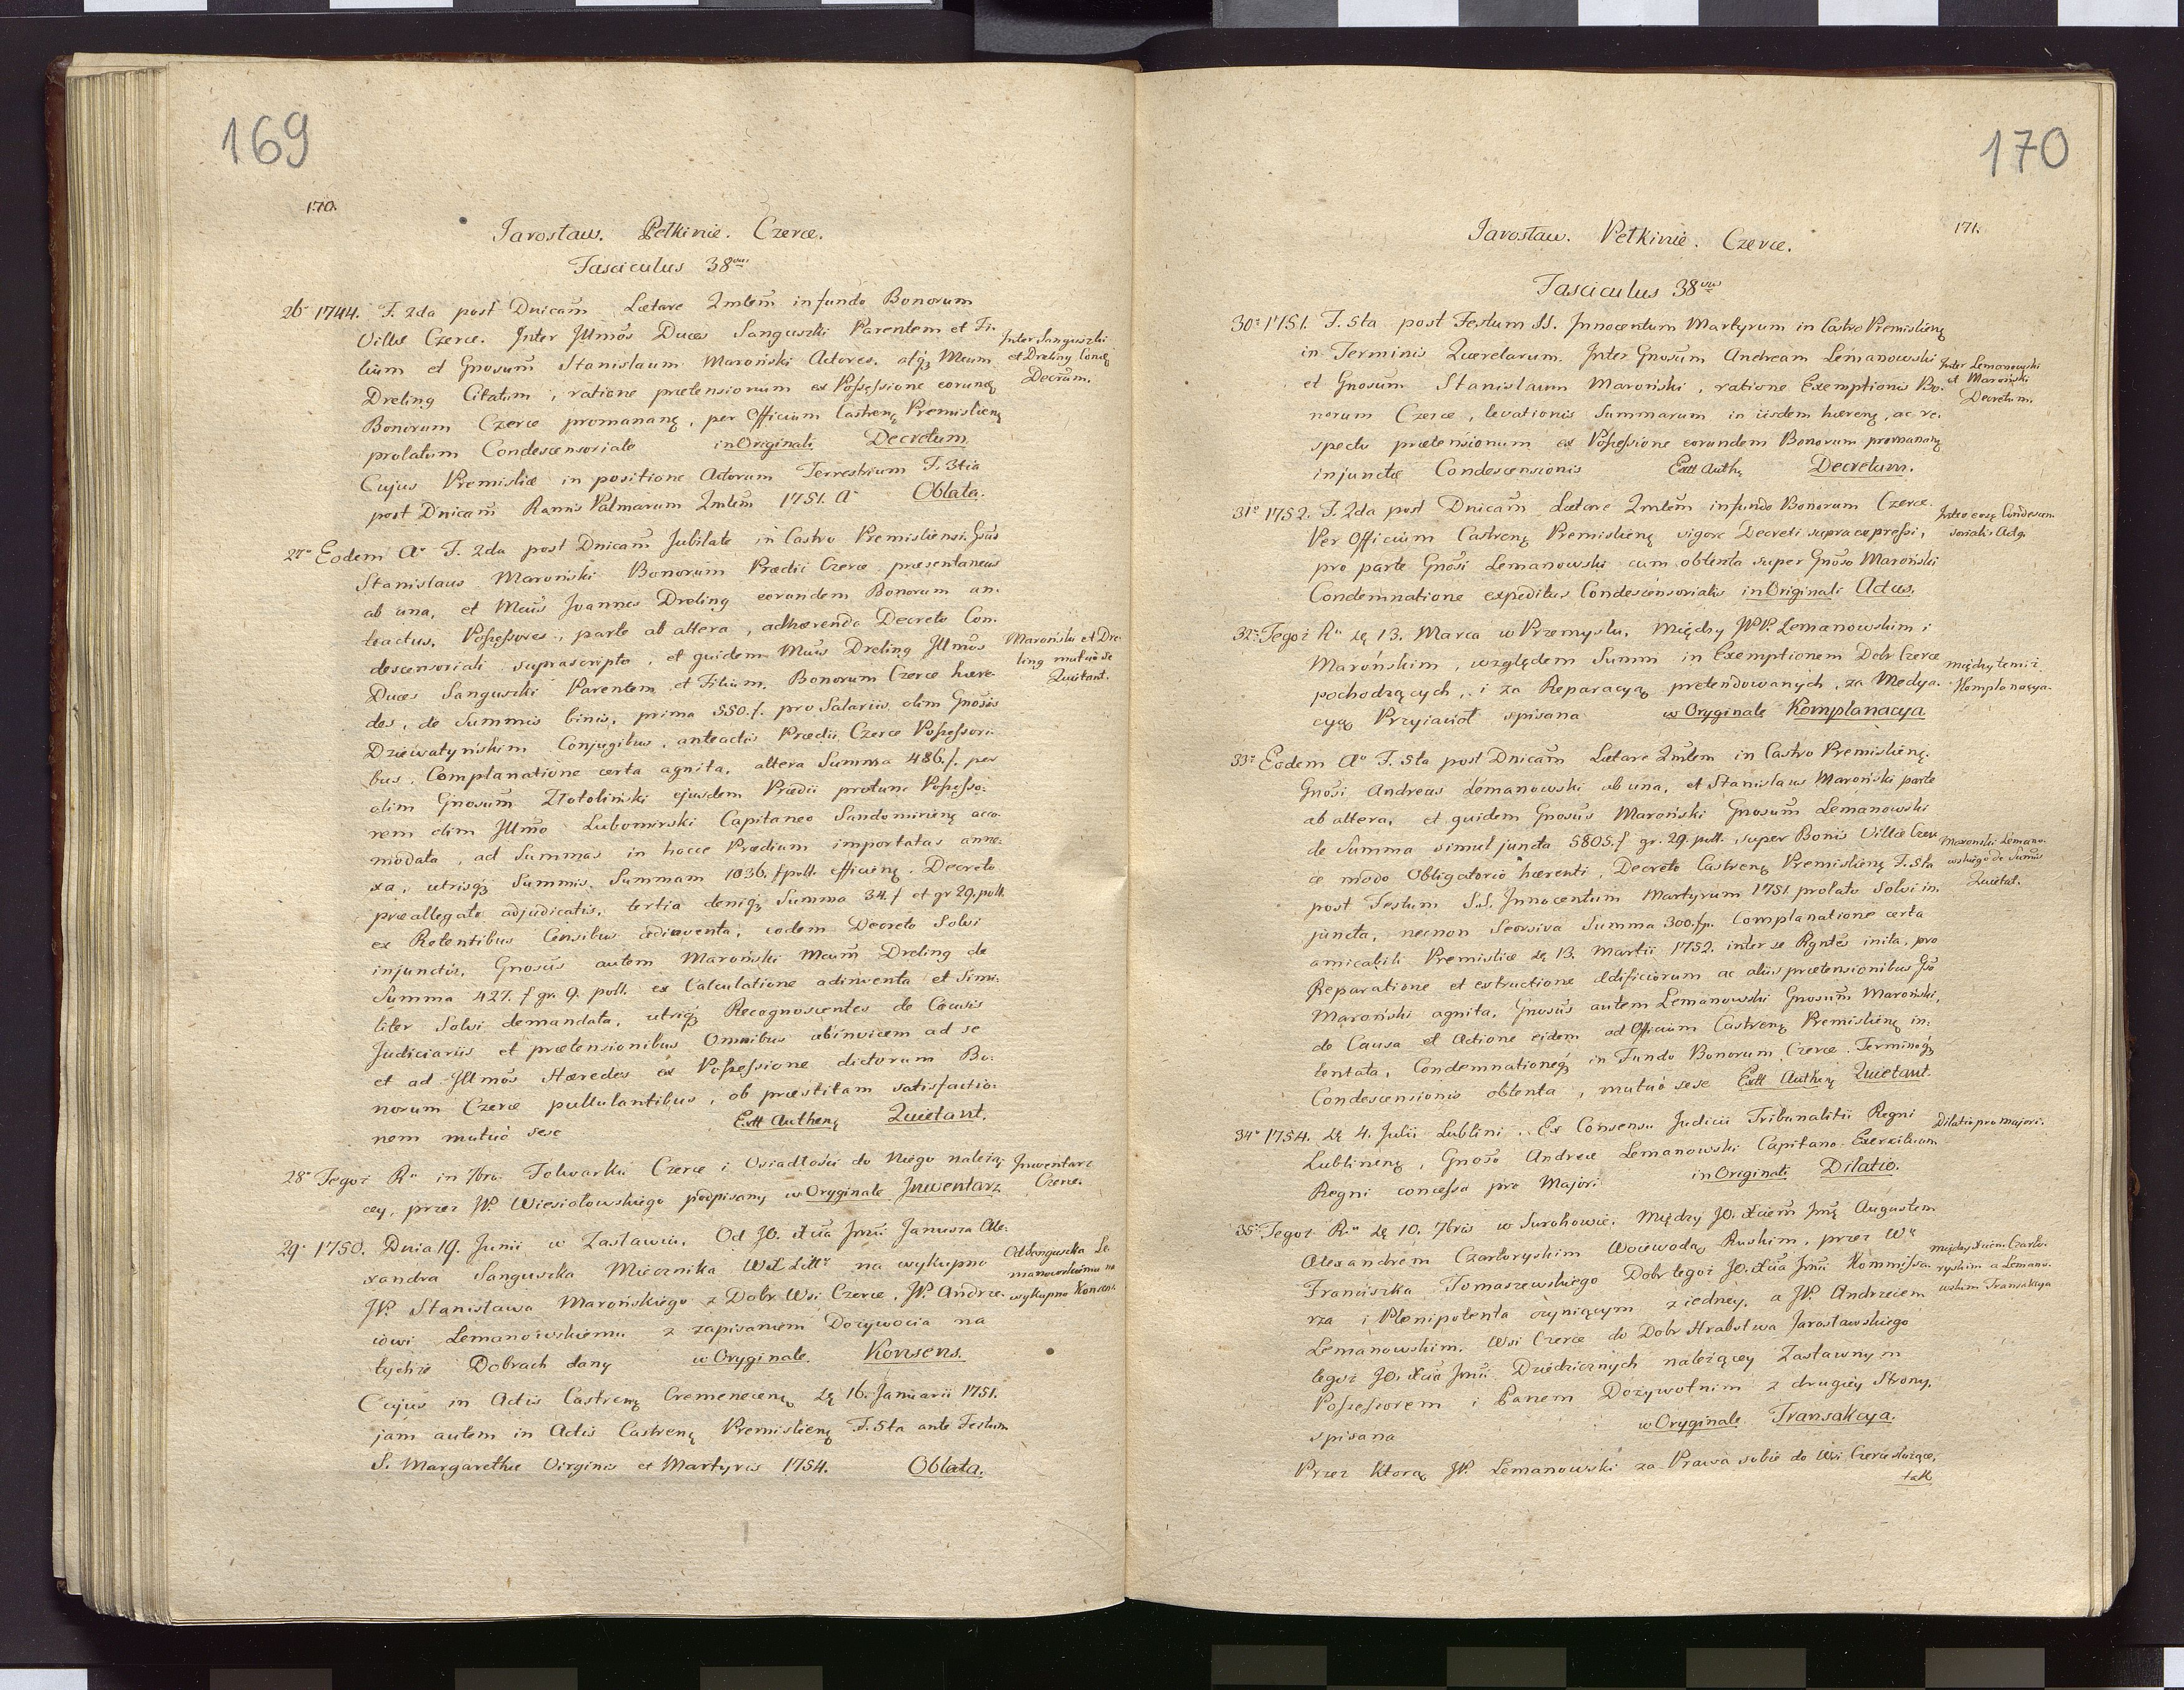 169
170.
Jarosław. Pełkinie. Czerce.
Fasciculus 38vus
26o 1744. F. 2da post Dnicam̃ Lætare Qmlem̃ in fundo Bonorum
Villæ Czerce. Inter Jllmos Duces Sanguszki Parentem et Fi-
lium et Gnosum̃ Stanislaum Maroński Actores, atq̃ Mcum
Dreling Citatum, ratione prætensionum ex Possessione eorundę
Bonorum Czerce promananę, per Officium Castrenę Premislienę
prolatum Condescensoriale in Originali Decretum
Cujus Premisliæ in positione Actorum Terrestrium F. 3tia
post Dnicam̃ Ramis Palmarum Qmlem̃ 1751. Ao Oblata.
Inter Sanguszki
et Dreling Condę
Decrum.
27o Eodem Ao F. 2da post Dnicam̃ Jubilate in Castro Premisliensi. Gsũs
Stanislaus Maroński Bonorum Prædii Czerce præsentaneus
ab una, et Mcus Joannes Dreling eorundem Bonorum an-
teactus, Possessores, parte ab altera, adhærendo Decreto Con-
descensoriali suprascripto, et quidem Mcũs Dreling Jllmos
Duces Sanguszki Parentem et Filium, Bonorum Czerce hære-
des, de Summis binis, prima 550. f. pro Salariis olim Gnosis
Dziewatyńskim Conjugibus, anteactis Prædii Czerce Possessori-
bus, Complanatione certa agnita, altera Summa 486. f. per
olim Gnosum̃ Złotoliński ejusdem Prædii protunc Possesso-
rem olim Jllmo Lubomirski Capitaneo Sandomirienę acco-
modata, ad Summas in hocce Prædium importatas anne-
xa, utrisq̃ Summis, Summam 1036. f poll. efficienę, Decreto
præallegato adjudicatis, tertia deniq̃ Summa 34. f et gr 29. poll.
ex Retentibus Censibus adinventa, eodem Decreto Solvi
injunctis, Gnosũs autem Maroński Mcum̃ Dreling de
Summa 427. f gr. 9. poll. ex Calculatione adinventa et Simi-
liter Solvi demandata, utriq̃ Recognoscentes de Causis
Judiciariis et prætensionibus Omnibus abinvicem ad se
et ad Jllmos Hæredes ex Possessione dictorum Bo-
norum Czerce pullulantibus, ob præstitam satisfactio-
nem mutuò sese Extt Authenę Quietant.
Maroński et Dre-
ling mutuò se
Quitant.
28o Tegoż Ru in 7bra Folwarku Czerce i Osiadłości do Niego należą-
cey, przez JP. Wiesiołowskiego podpisany w Oryginale Jnwentarz
Jnwentarz
Czerce.
29o 1750. Dnia 19. Junii w Zasławiu. Od JO. Xcia Jmci Janusza Ale-
xandra Sanguszka Miecznika WXLittgo na wykupno
JP. Stanisława Marońskiego z Dobr Wsi Czerce, JP. Andrze-
iowi Lemanowskiemu z zapisaniem Dożywocia na
tychże Dobrach dany w Oryginale. Konsens.
Cujus in Actis Castrenę Cremenecenę dę 16. Januarii 1751.
jam autem in Actis Castrenę Premislienę F. 5ta ante Festum
S. Margarethæ Virginis et Martyris 1754. Oblata.
Od Sanguszka Le-
manowskiemu na
wykupno Konsens.
170
171.
Jarosław. Pełkinie. Czerce.
Fasciculus 38vus
30o 1751. F. 5ta post Festum SS. Innocentum Martyrum in Castro Premislienę
in Terminis Querelarum. Inter Gnosum Andream Lemanowski
et Gnosum Stanislaum Maroński, ratione Exemptionis Bo-
norum Czerce, levationis Summarum in iisdem hærenę, ac re-
spectu prætensionum ex Possessione eorundem Bonorum promananę
injunctæ Condescensionis Extt Authę Decretum.
Inter Lemanowski
et Maroński
Decretum.
31o 1752. F. 2da post Dnicam̃ Lætare Qmlem̃ in fundo Bonorum Czerce.
Per Officium Castrenę Premislienę vigore Decreti supra expressi,
pro parte Gnosi Lemanowski cum obtenta super Gnoso Maroński
Condemnatione expeditus Condescensorialis in Originali Actus.
Inter eosę Condescen-
sorialis Actę.
32o Tegoż Ru dę 13. Marca w Przemyslu, Między JPP. Lemanowskim i
Marońskim, względem Summ in Exemptionem Dobr Czerce
pochodzących, i za Reparacyą pretendowanych, za Medya-
cyą Przyiacioł spisana w Oryginale Komplanacya
między temiż
Komplanacya.
33o Eodem Ao F. 5ta post Dnicam Lætare Qmlem in Castro Premislienę.
Gnosi Andreas Lemanowski ab una, et Stanislaus Maroński parte
ab altera, et quidem Gnosũs Maroński Gnosum̃ Lemanowski
de Summa simul juncta 5805. f gr. 29. poll. super Bonis Villæ Czer-
ce modo Obligatorio hærenti, Decreto Castrenę Premislienę F. 5ta
post Festum S.S. Innocentum Martyrum 1751. prolato Solvi in-
juncta, necnon Seorsiva Summa 300. fp. Complanatione certa
amicabili Premisliæ dę 13. Martii 1752. inter se Rgntes inita, pro
Reparatione et extructione ædificiorum ac aliis prætensionibus Gso
Maroński agnita, Gnosũs autem Lemanowski Gnosum̃ Maroński,
de Causa et Actione eidem ad Officium Castrenę Premislienę in-
tentata, Condemnationeq̃ in Fundo Bonorum Czerce Terminoq̃
Condescensionis obtenta, mutuò sese Extt Authenę Quietant.
Maronski Lemano-
wskiego de Sumis
Quietat.
34o 1754. dę 4. Julii Lublini. Ex Consensu Judicii Tribunalitii Regni
Lublinenę, Gnoso Andreæ Lemanowski Capitano Exercituum
Regni concessa pro Majori in Originali Dilatio.
Dilatio pro majori.
35o Tegoż Ru dę 10. 7bris w Surohowie. Między JO. Xciem̃ Jmę Augustem
Alexandrem Czartoryskim Woiewodą Ruskim, przez Wo
Franciszka Tomaszewskiego Dobr tegoż JO. Xcia Jmci Kommissa-
rza i Plenipotenta czyniącym z iedney, a JP. Andrzeiem
Lemanowskim, Wsi Czerce do Dobr Hrabstwa Jarosławskiego
tegoż JO. Xcia Jmci Dziedzicznych należącey Zastawnym
Possessorem i Panem Dożywotnim z drugiey Strony,
spisana w Oryginale Transakcya.
Przez ktorą JP. Lemanowski za Prawa sobie do Wsi Czerce służące,
tak
między Xciem Czarto-
ryskim a Lemano-
wskim Transakcya